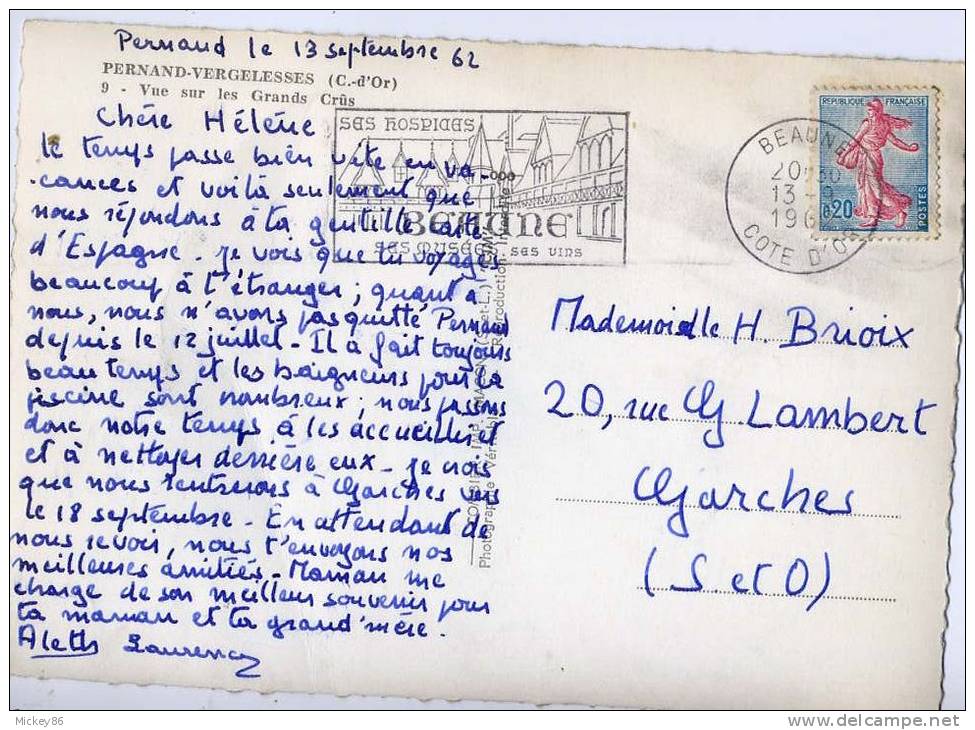 Pernand le 13 septembre 62
PERNAND-VERGELESSES (C.-d'Or)
9 - Vue sur les Grands Crûs
Chère Hélène
le temps passe bien vite en va-
cances et voilà seulement que
nous répondons à ta gentille carte
d'Espagne. Je vois que tu voyages
beaucoup à l'étranger ; quant à
nous, nous n'avons pas quitté Pernand
depuis le 12 juillet - Il a fait toujours
beau temps et les baigneurs pour la
piscine sont nombreux ; nous passons
donc notre temps à les accueillir et
et à nettoyer derrière eux - je crois
que nous rentrerons à Garches vers
le 18 septembre - En attendant de
nous revoir, nous t'envoyons nos
meilleures amitiés - Maman me
charge de son meilleur souvenir pour
ta maman et ta grand'mère.
Aleth Laurency
SES HOSPICES
BEAUNE
SES MUSÉES SES VINS
BEAUNE
20 30
13 - 9
196
COTE D'OR
REPUBLIQUE FRANÇAISE
0,20
POSTES
Mademoiselle H. Brioix
20, rue G Lambert
Garches
(S. et O)
Reproduction
Photographie
Mickey86
www.delcampe.net